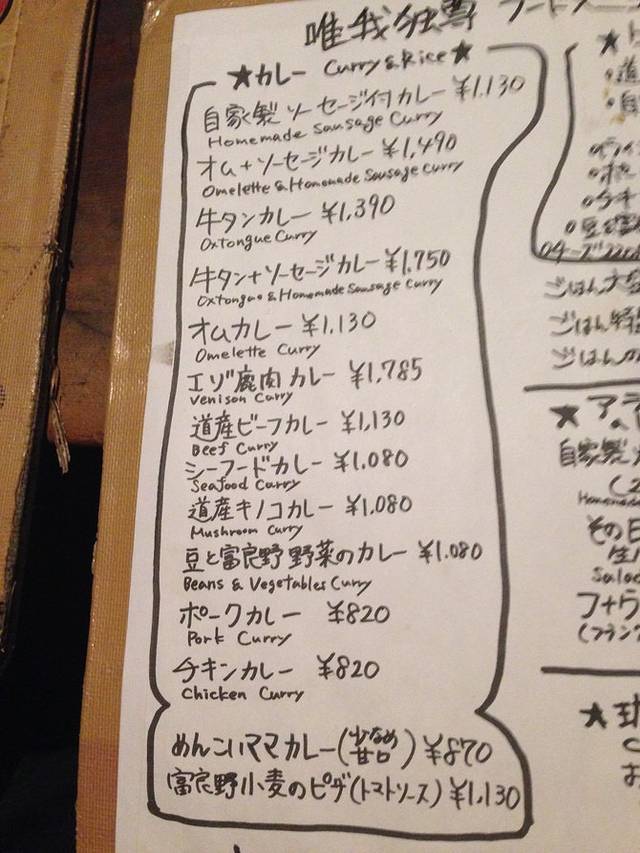 唯我独尊 フード
★カレー Curry & Rice★
自家製ソーセージ付カレー ¥1,130
Homemade Sausage Curry
オム+ソーセージカレー ¥1,490
Omelette & Homemade Sausage Curry
牛タンカレー ¥1,390
Oxtongue Curry
牛タン+ソーセージカレー ¥1,750
Oxtongue & Homemade Sausage Curry
オムカレー ¥1,130
Omelette Curry
エゾ鹿肉カレー ¥1,785
Venison Curry
道産ビーフカレー ¥1,130
Beef Curry
シーフードカレー ¥1,080
Seafood Curry
道産キノコカレー ¥1,080
Mushroom Curry
豆と富良野野菜のカレー ¥1,080
Beans & Vegetables Curry
ポークカレー ¥820
Pork Curry
チキンカレー ¥820
Chicken Curry
めんこいママカレー(少なめ 甘口) ¥870
富良野小麦のピザ(トマトソース) ¥1,130
ごはん大
ごはん特
ごはんの
★アラ
自家製
その日